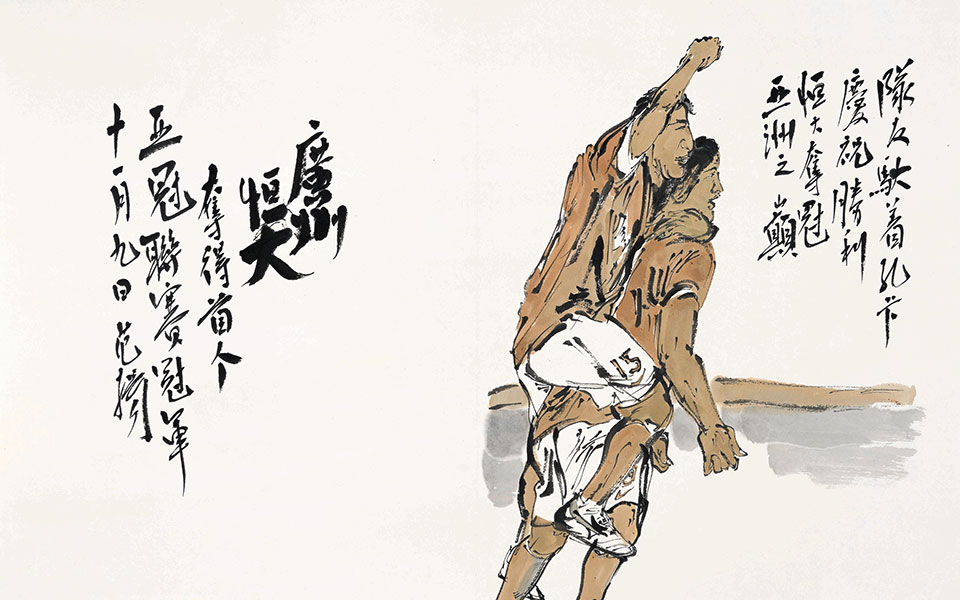 隊友馱着孔卡
慶祝勝利
恒大奪冠
亚洲之巔
廣州
恒大
奪得首个
亚冠聯賽冠军
十一月九日
15